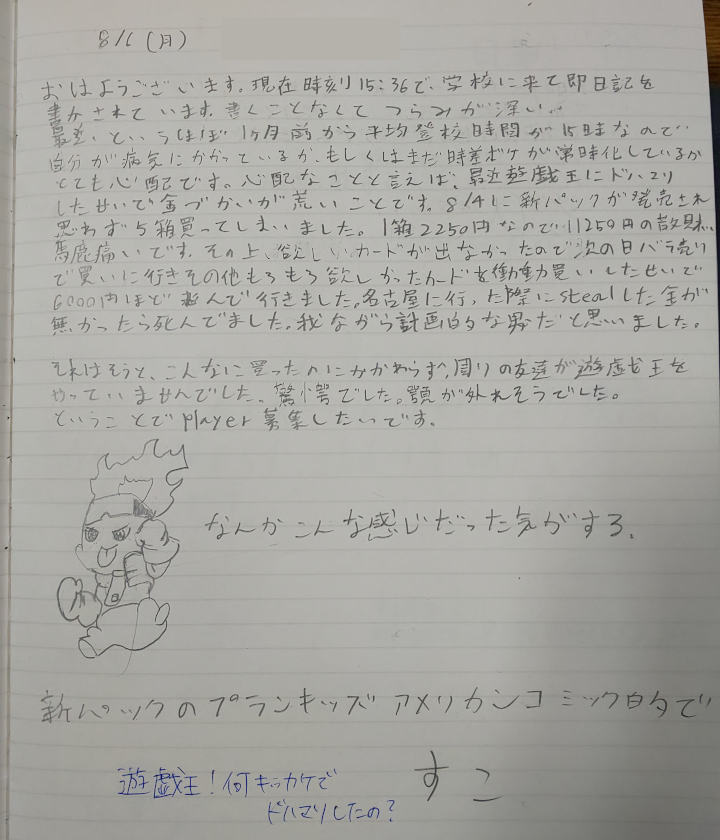 8/6(月)
おはようございます。現在時刻15:36で、学校に来て即日記を
書かされています。書くことなくてつらみが深い。
最近というほぼ1ヶ月前から平均登校時間が15時なので
自分が病気にかかっているか、もしくはまだ時差ボケが常時化しているか
とても心配です。心配なことと言えば、最近遊戯王にドハマり
したせいで金づかいが荒いことです。8/4に新パックが発売され
思わず5箱買ってしまいました。1箱2250円なので11250円の散財、
馬鹿痛いです。その上、欲しいカードが出なかったので次の日バラ売り
で買いに行きその他もろもろ欲しかったカードを衝動買いしたせいで
6000円ほど飛んで行きました。名古屋に行った際にstealした金が
無かったら死んでました。我ながら計画的な男だと思いました。
それはそうと、こんなに買ったのにかかわらず、周りの友達が遊戯王を
やっていませんでした。驚愕でした。顎が外れそうでした。
ということでplayer募集したいです。
なんかこんな感じだった気がする。
新パックのプランキッズアメリカンコミック的で
すこ
遊戯王!何キッカケで
ドハマりしたの?